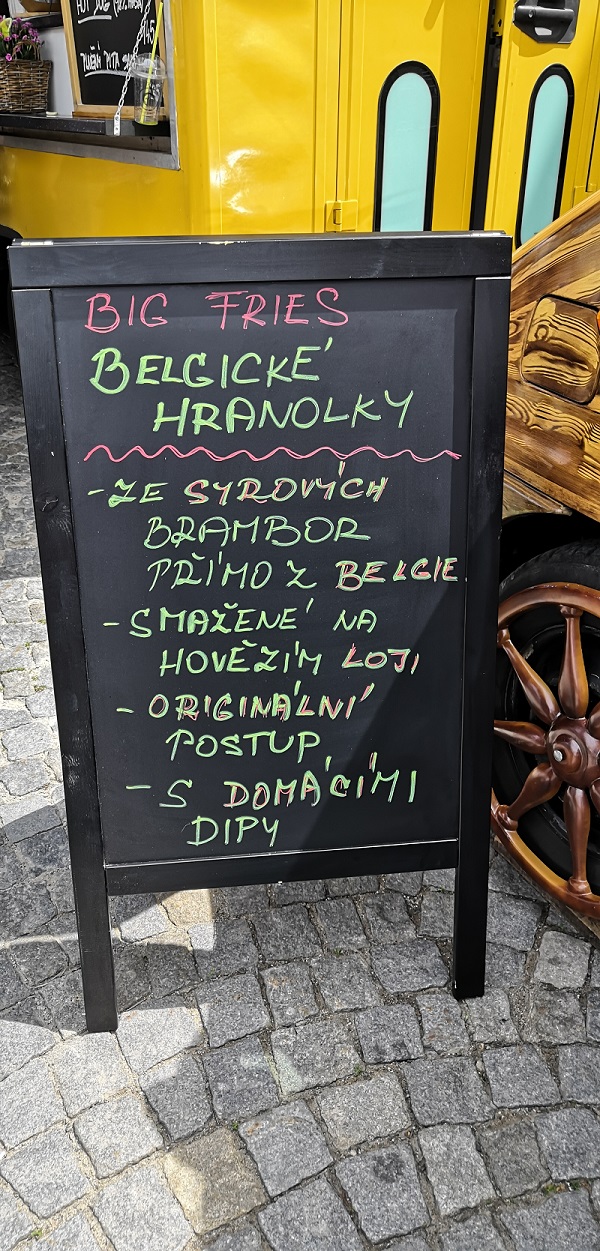 HOT DOG
TUČNÝ PITA
BIG FRIES
BELGICKÉ
HRANOLKY
-ZE SYROVÝCH
BRAMBOR
PŘÍMO Z BELGIE
-SMAŽENÉ NA
HOVĚZÍM LOJI
-ORIGINÁLNÍ
POSTUP
-S DOMÁCÍMI
DIPY